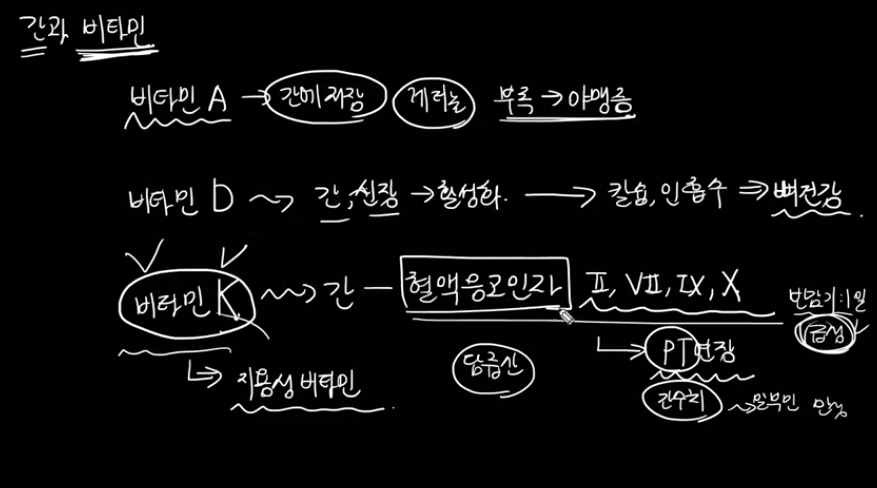 간과 비타민
비타민 A → 간에 저장 레티놀 부족 → 야맹증
비타민 D → 간, 신장 → 활성화. → 칼슘, 인 흡수 ⇒ 뼈건강.
비타민 K → 간 — 혈액응고인자 Ⅱ, Ⅶ, Ⅸ, Ⅹ
반감기:1일
급성
PT연장
담즙산
지용성 비타민.
간수치 → 알부민 만성